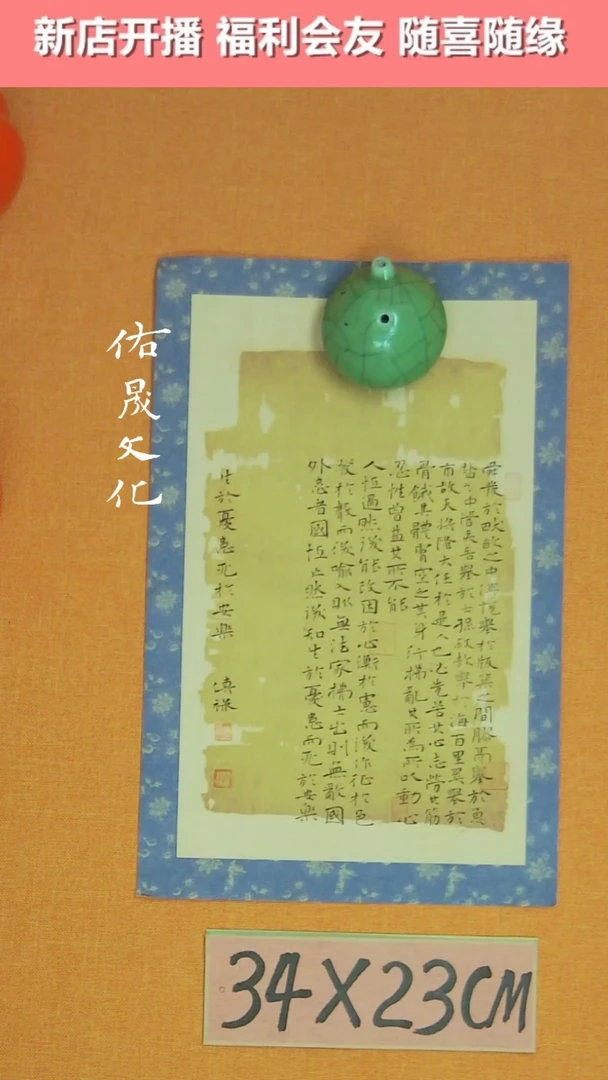 新店开播 福利会友 随喜随缘
佑晟文化
舜發於畎畝之中傅說舉於版築之間膠鬲舉於魚
鹽之中管夷吾舉於士孫叔敖舉於海百里奚舉於
市故天将降大任於是人也必先苦其心志勞其筋
骨餓其體膚空乏其身行拂亂其所為所以動心
忍性曾益其所不能
人恒過然後能改困於心衡於慮而後作征於色
發於聲而後喻入則無法家拂士出則無敵國
外患者國恒亡然後知生於憂患而死於安樂
生於憂患死於安樂
34X23CM